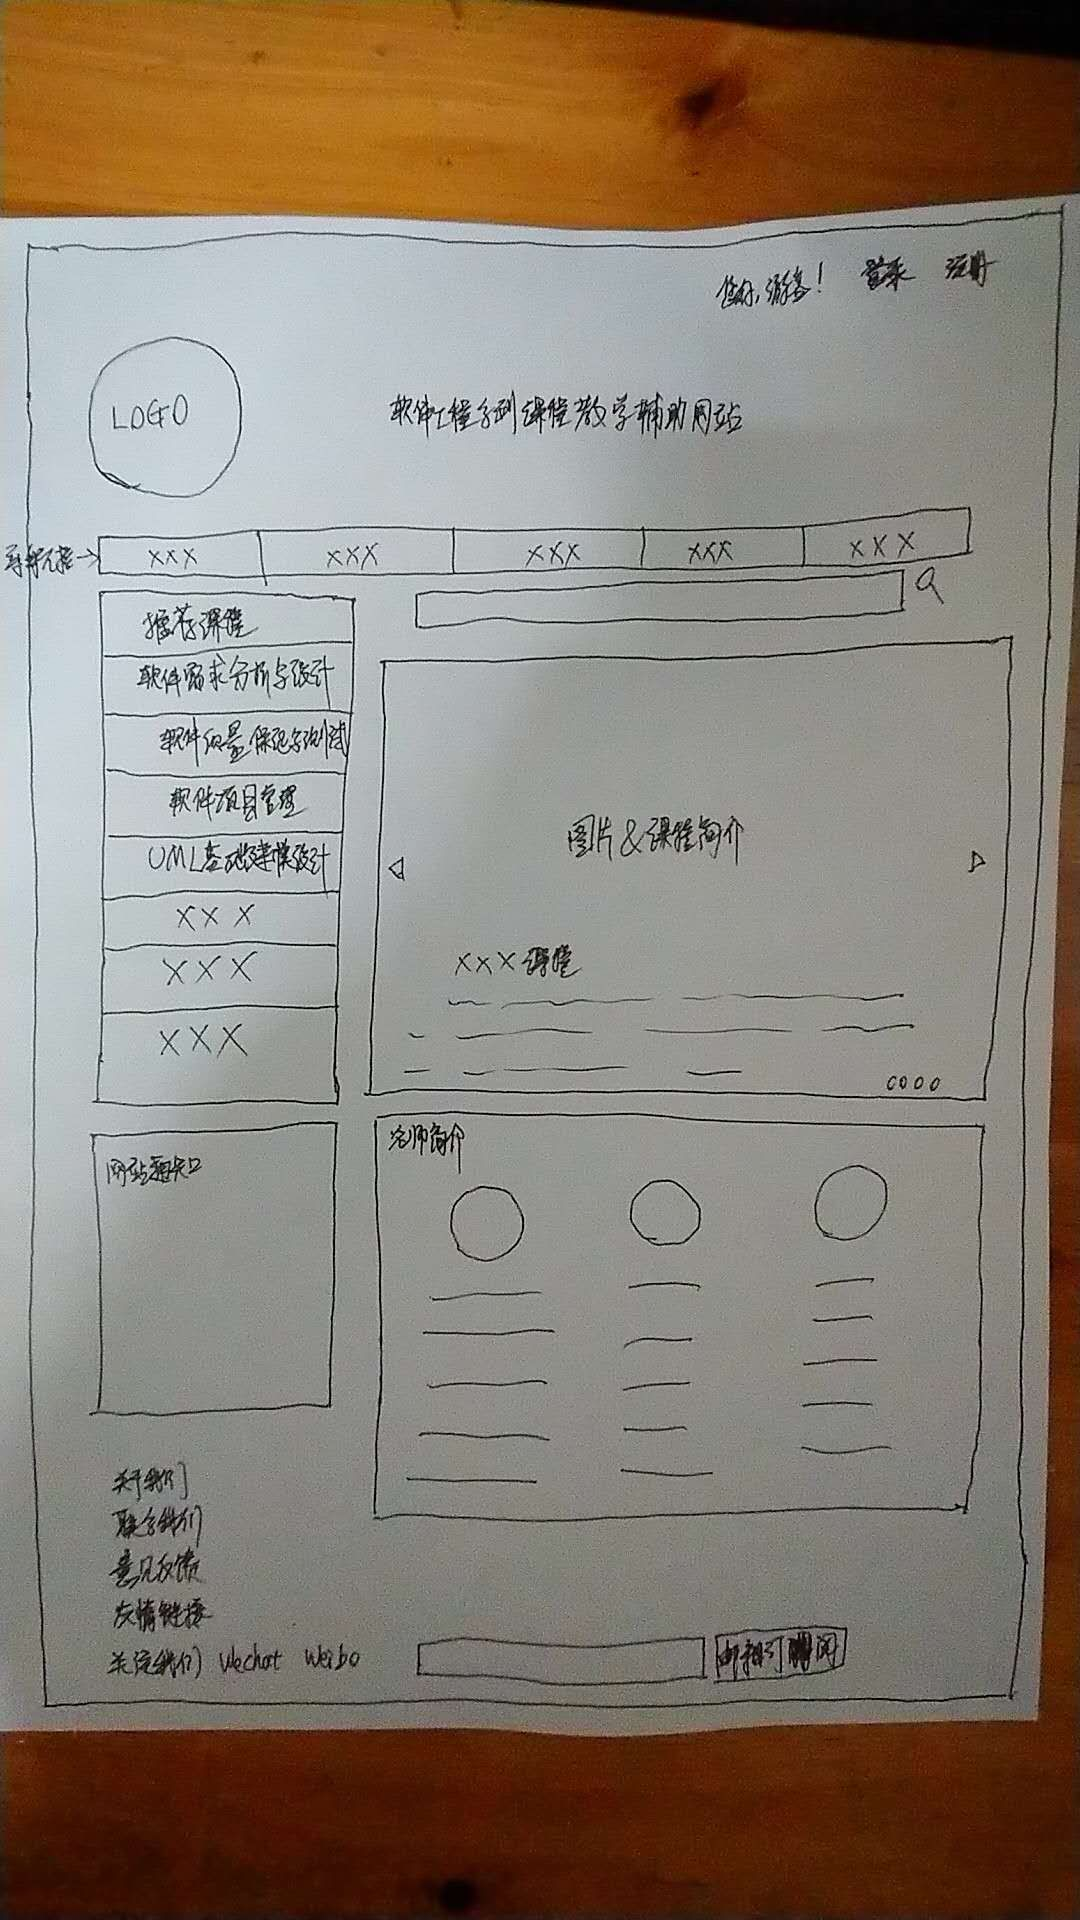 您好,游客! 登录 注册
LOGO
软件工程系列课程教学辅助网站
XXX XXX XXX XXX XXX
推荐课程
软件需求分析与设计
软件质量保证与测试
软件项目管理
UML基础建模设计
XXX
XXX
XXX
图片&课程简介
XXX课程
网站
老师简介
关于我们
联系我们
意见反馈
友情链接
关注我们 Wechat Weibo
邮箱订阅